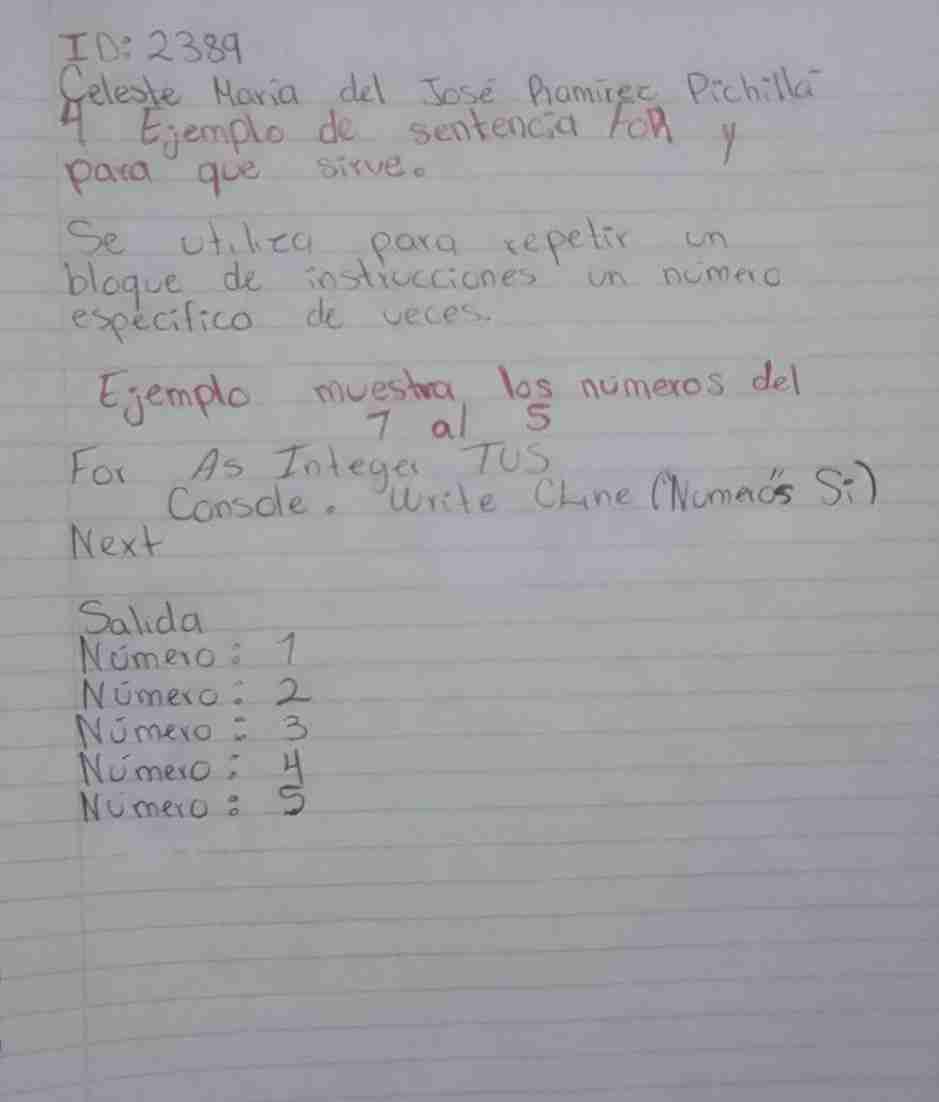 ID: 2389
Celeste Maria del José Ramirez Pichillá
4 Ejemplo de sentencia FOR y
para que sirve.
Se utiliza para repetir un
bloque de instrucciones un número
especifico de veces.
Ejemplo muestra los números del
1 al 5
For As Integer TUS
Console. Write CLine (Numero's Si)
Next
Salida
Número: 1
Número: 2
Número: 3
Número: 4
Número: 5